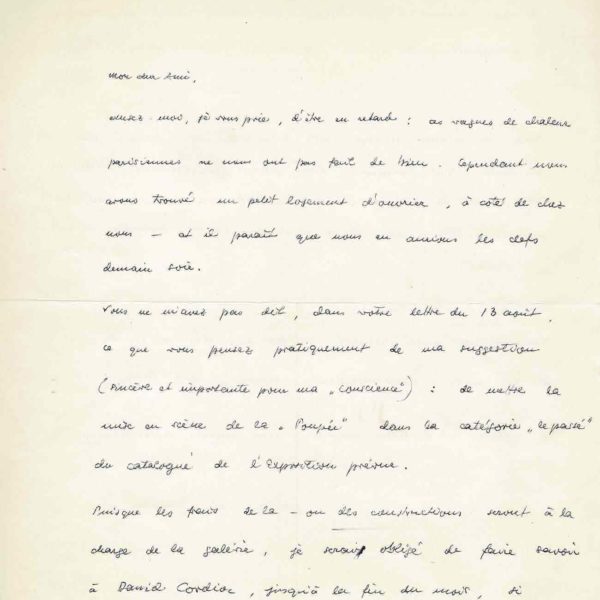 mon cher Ami,
excusez moi, je vous prie, d'être en retard : ces vagues de chaleur
parisiennes ne nous ont pas fait de bien. Cependant nous
avons trouvé un petit logement d'ouvrier, à côté de chez
nous — et il paraît que nous en aurions les clefs
demain soir.
Vous ne m'avez pas dit, dans votre lettre du 13 août,
ce que vous pensez pratiquement de ma suggestion
(sincère et importante pour ma „conscience") : de mettre la
mise en scène de la „Poupée" dans la catégorie „le passé"
du catalogue de l'Exposition prévue.
Puisque les frais de la – ou des constructions seront à la
charge de la galérie, je serais obligé de faire savoir
à Daniel Cordier, jusqu'à la fin du mois, si